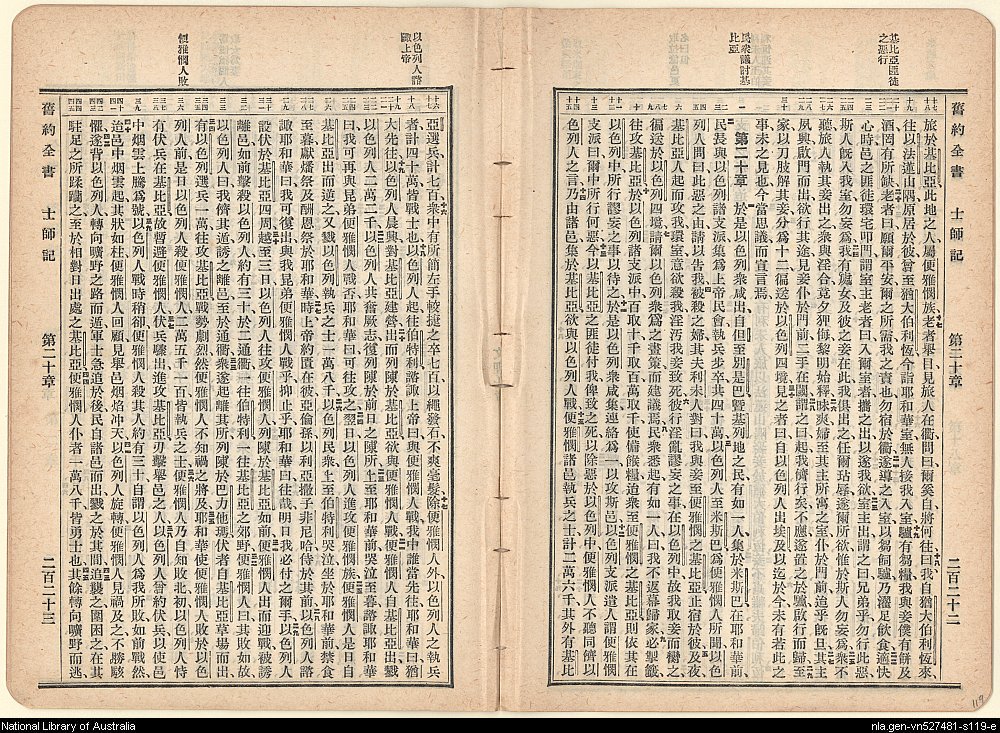 基比亞匪徒
之惡行
民衆議討基
比亞
舊約全書 士師記 第二十章 二百二十二
旅於基比亞此地之人屬便雅憫族老者舉目見旅人在衢問曰爾奚自將何往曰我自猶大伯利恆來
往以法蓮山隅原居於彼曾至猶大伯利恆今詣耶和華室無人接我入室驢有芻糧我與妾僕有餅及
酒罔有所缺老者曰願爾平安爾之所需我之責也勿宿於衢遂導之入室以芻飼驢乃濯足飲食適快
心時邑之匪徒環宅叩門謂室主老者曰入爾室者攜之出以遂我欲室主出謂之曰兄弟乎勿行此惡
斯人旣入我室勿妄爲我有處女及彼之妾在此我俱出之任爾玷辱遂爾所欲惟於斯人勿妄爲衆不
聽旅人執其妾出之衆與淫合竟夕狎侮黎明始釋昧爽婦至其主所寓之室仆於門前迨乎旣旦其主
夙興啟門而出欲行其途見妾仆於門前二手在閾謂之曰起我儕行矣不應遂置之於驢啟行而歸至
家以刀肢解其妾分爲十二徧送於以色列四境見之者曰自以色列人出埃及以迄於今未有若此之
事未之見也今當思議而宣言焉
第二十章 於是以色列衆咸出自但至別是巴曁基列地之民有如一人集於米斯巴在耶和華前
民長與以色列諸支派集爲上帝民會執兵步卒共四十萬以色列人至米斯巴爲便雅憫人所聞以色
列人問曰此惡之由請以告我被殺之婦其夫利未人對曰我與妾至便雅憫之基比亞止宿於彼及夜
基比亞人起而攻我環室意欲殺我淫汚我妾致死彼行淫亂謬妄之事在以色列中故我取妾而臠之
徧送於以色列四境請爾以色列衆爲之畫策而建議焉民衆悉起有如一人曰我不返幕歸家必掣籤
往攻基比亞於以色列諸支派中百取十千取百萬取千使備餱糧迨衆至便雅憫之基比亞則依其在
以色列中所行謬妄之事以待之於是以色列衆咸集連絡爲一以攻斯邑以色列支派遣人謂便雅憫
支派曰爾中所行何惡今以基比亞之匪徒付我俾致之死以除惡於以色列中便雅憫人不聽同儕以
色列人之言乃由諸邑集於基比亞欲與以色列人戰便雅憫諸邑執兵之士計二萬六千其外有基比
以色列人諮
諏上帝
便雅憫人敗
亞選兵計七百衆中有所簡左手較捷之卒七百以繩發石不爽毫髮除便雅憫人外以色列人之執兵
者計四十萬皆戰士也以色列人起往伯特利諮諏上帝曰與便雅憫人戰我中誰當先往耶和華曰猶
大先往以色列人晨興對基比亞建營出而與便雅憫人戰陳列於基比亞欲與便雅憫人自基比亞出戮
以色列人二萬二千以色列人共奮厥志復列陳於前日之陳所上至耶和華前哭泣至暮諮諏耶和華
曰我可再與昆弟便雅憫人戰否耶和華曰可往攻之翌日以色列人進攻便雅憫族便雅憫人是日自
基比亞出而逆之又戮以色列執兵之士一萬八千以色列民衆上至伯特利哭泣坐於耶和華前禁食
至暮獻燔祭及酬恩祭於耶和華時上帝約匱在彼亞倫孫以利亞撒子非尼哈侍於其前以色列人諮
諏耶和華曰我可復出與我昆弟便雅憫人戰乎抑止乎耶和華曰往哉明日我必付之爾手以色列人
設伏於基比亞四周越至三日以色列人往攻便雅憫人列陳於基比亞如前便雅憫人出而迎戰被誘
離邑如前擊殺以色列人約有三十於二通衢一往伯特利一往基比亞之郊野便雅憫人曰其敗如故
以色列人曰我儕其遁誘之離邑至於通衢衆遂起離其所列陳於巴力他瑪伏者自基比亞草場而出
有以色列選兵一萬往攻基比亞戰勢劇烈然便雅憫人不知禍之將及耶和華使便雅憫人敗於以色
列人前是日以色列人殺便雅憫人二萬五千一百皆執兵之士便雅憫人乃自知敗北初以色列人恃
有伏兵在基比亞故暫避便雅憫人伏兵驟出進攻基比亞刃擊舉邑之人以色列人嘗約伏兵以使邑
中烟雲上騰爲號以色列人戰時稍卻便雅憫人殺其人約有三十自謂以色列人爲我所敗如前戰然
迨邑中烟雲起其狀如柱便雅憫人回顧見舉邑烟焰冲天以色列人旋轉便雅憫人見禍及之不勝駭
懼遂背以色列人轉向曠野之路而遁軍士急追於後民自諸邑而出戮之於其間追襲之圍困之在其
駐足之所蹂躪之至於相對日出處之基比亞便雅憫人仆者一萬八千皆勇士也其餘轉向曠野而逃
舊約全書 士師記 第二十章 二百二十三
119
National Library of Australia
nla.gen-vn527481-s119-e